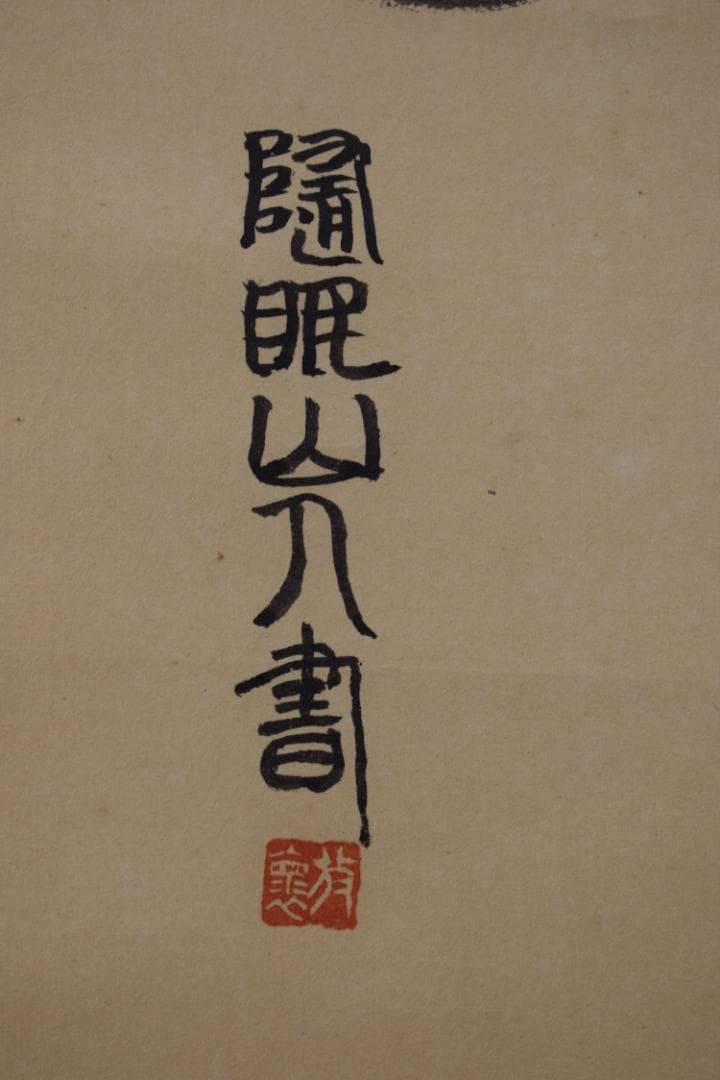 隨眠山人書